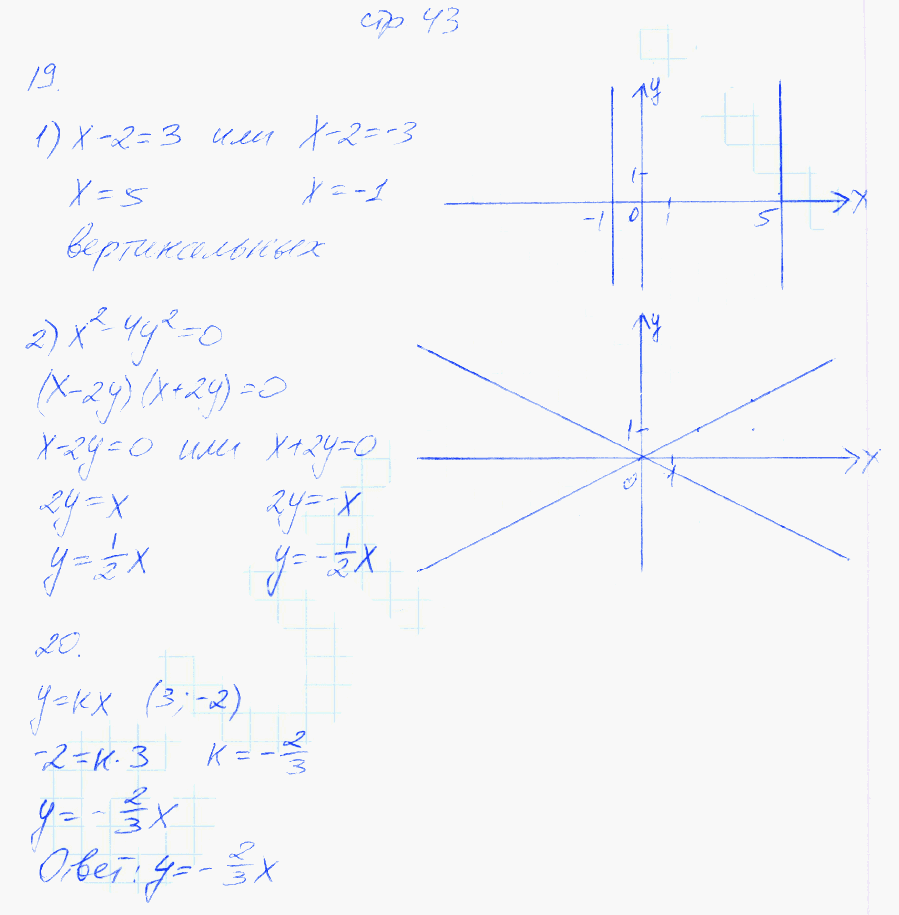 стр 43
19.
1) x-2=3 или x-2=-3
x=5 x=-1
вертикальных
y
1
-1 0 1 5 x
2) x²-4y²=0
(x-2y)(x+2y)=0
x-2y=0 или x+2y=0
2y=x 2y=-x
y=1/2x y=-1/2x
y
1
0 1 x
20.
y=кx (3;-2)
-2=к·3 к=-2/3
y=-2/3x
Ответ: y=-2/3x